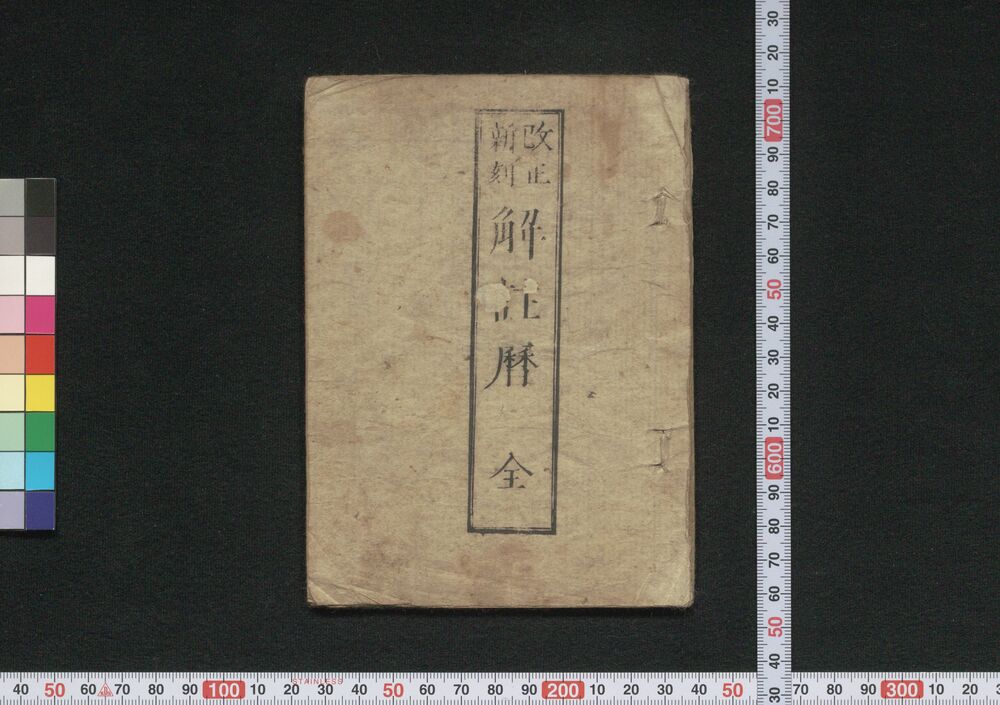 改正
新刻
解註暦 全
30 20 10 700 90 80 70 60 50 40 30 20 10 600 90 80 70 60 50 40 30
40 50 60 70 80 90 100 10 20 30 40 50 60 70 80 90 200 10 20 30 40 50 70 80 90 300 10 20
STAINLESS